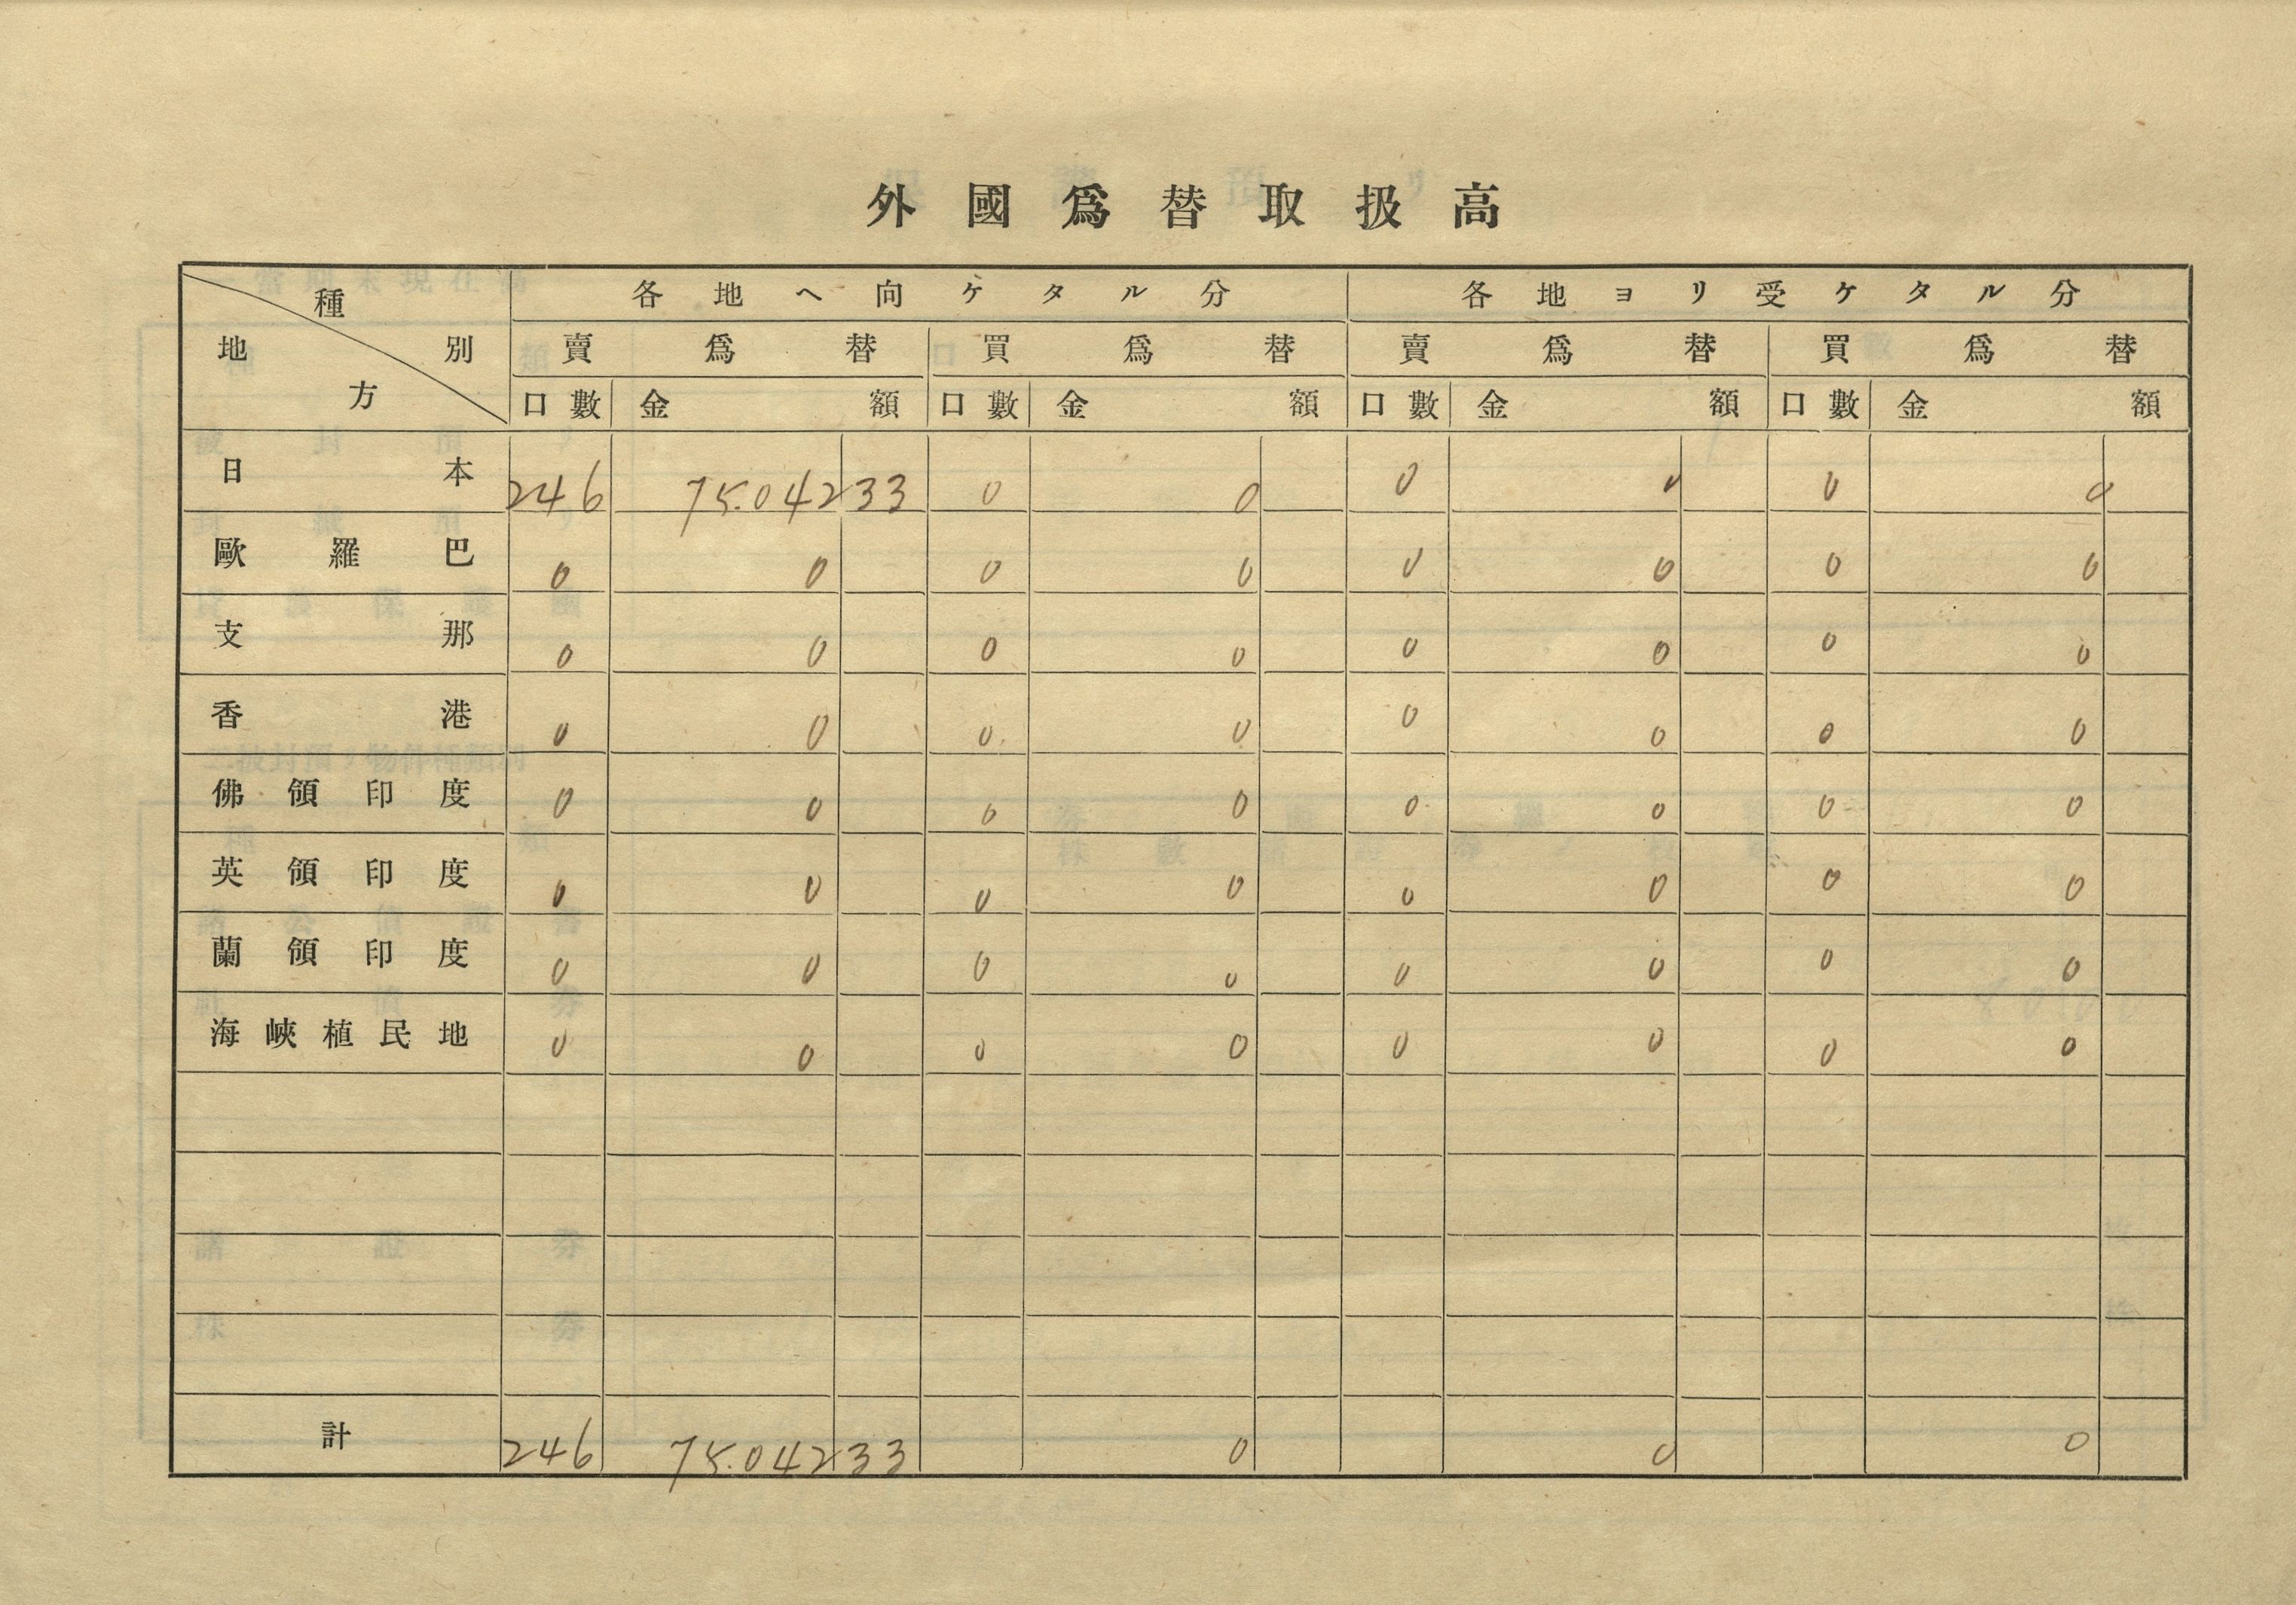 外國爲替取扱高
種別 地方 各地ヘ向ケタル分 各地ヨリ受ケタル分
賣爲替 買爲替 賣爲替 買爲替
口數 金額 口數 金額 口數 金額 口數 金額
日本 246 75.042 33 0 0 0 0 0 0
歐羅巴 0 0 0 0 0 0 0 0
支那 0 0 0 0 0 0 0 0
香港 0 0 0 0 0 0 0 0
佛領印度 0 0 0 0 0 0 0 0
英領印度 0 0 0 0 0 0 0 0
蘭領印度 0 0 0 0 0 0 0 0
海峽植民地 0 0 0 0 0 0 0 0
計 246 75.042 33 0 0 0